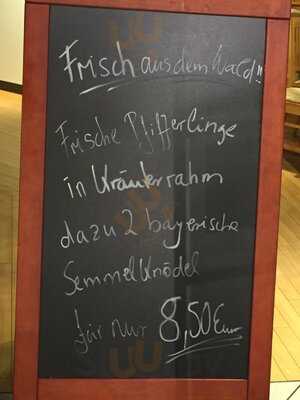 Frisch aus dem Wald!!
Frische Pfifferlinge
in Kräuterrahm
dazu 2 bayerische
Semmelknödel
für nur 8,50 Euro